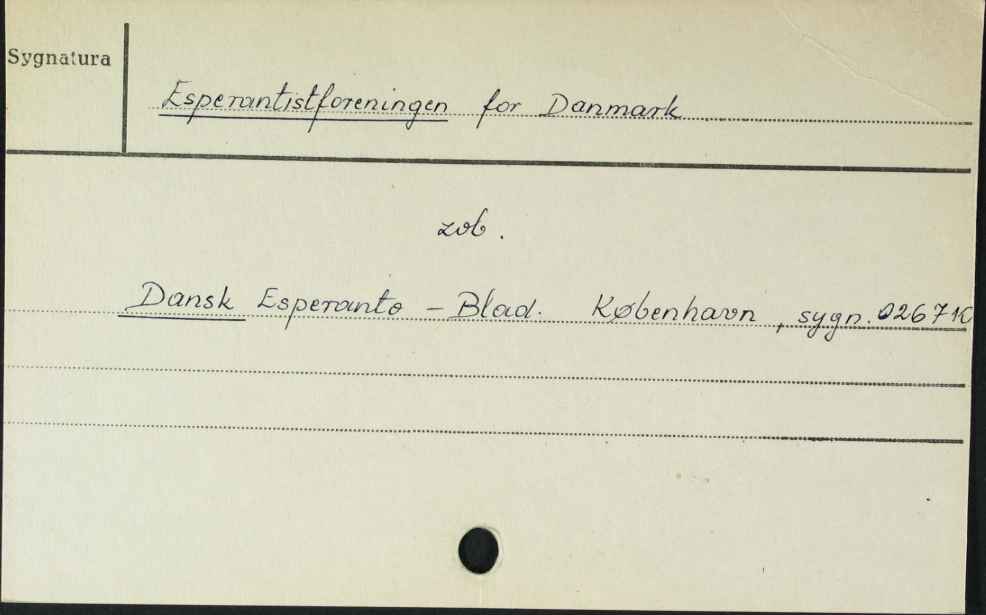 Sygnatura
Esperantistforeningen for Danmark
zob.
Dansk Esperanto - Blad. København, sygn. 02671C